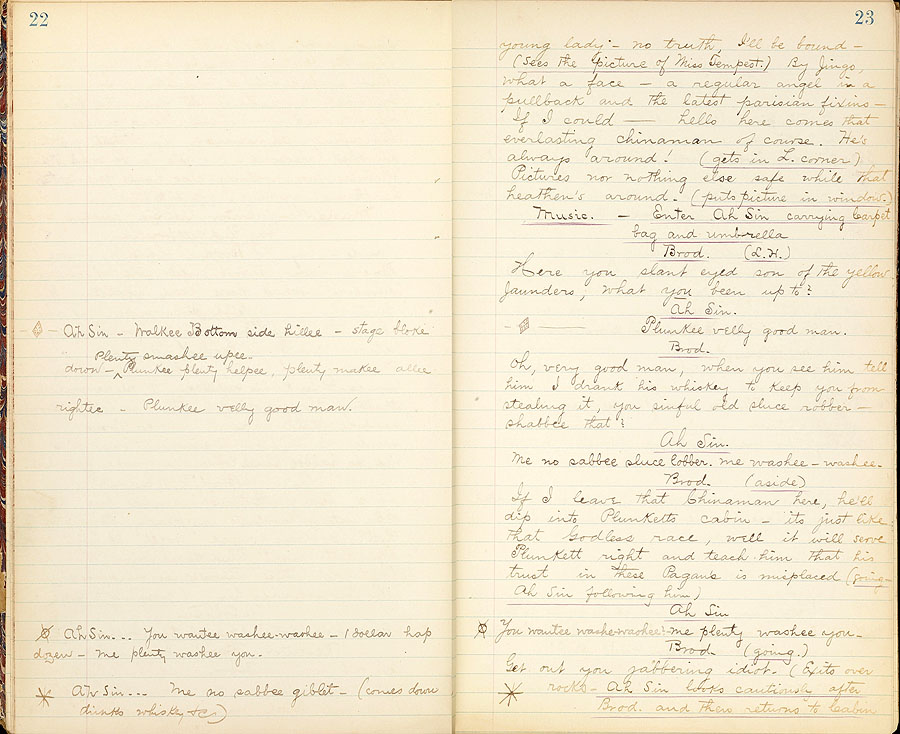 22
Ah Sin - Walkee Bottom side hillee - stage bloke
Plenty smashee upee.
down - Plunkee plenty helpee, plenty makee allee
rightee - Plunkee velly good man.
Ah Sin... You wantee washee-washee - 1 dollar hap
dozen - me plenty washee you.
Ah Sin... Me no sabbee giblet - (comes down
drinks whisky &c)
23
young lady - no truth, I'll be bound -
(sees the picture of Miss Tempest.) By Jingo,
what a face - a regular angel in a
pullback and the latest parisian fixins -
If I could - hells here comes that
everlasting chinaman of course. He's
always around. (gets in L. corner)
Pictures nor nothing else safe while that
heathen's around. (puts picture in window.)
Music. - Enter Ah Sin carrying Carpet
bag and umbrella
Brod. (L.H.)
Here you slant eyed son of the yellow
Jaunders, what you been up to?
Ah Sin.
Plunkee velly good man.
Brod.
Oh, very good man, when you see him tell
him I drank his whiskey to keep you from
stealing it, you sinful old sluce robber -
shabbee that?
Ah Sin.
Me no sabbee sluce lobber. me washee - washee.
Brod. (aside)
If I leave that Chinaman here, he'll
dip into Plunketts cabin - its just like
that Godless race, well it will serve
Plunkett right and teach him that his
trust in these Pagans is misplaced (going-
Ah Sin following him)
Ah Sin
You wantee washe-washee? - me plenty washee you -
Brod. (going.)
Get out you jabbering idiot. (Exits over
rocks - Ah Sin looks cautiously after
Brod. and then returns to Cabin